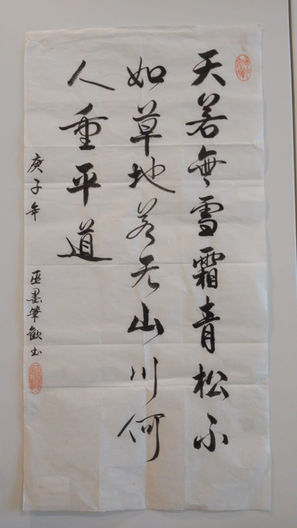 天若無雪霜青松不
如草地若无山川何
人重平道
庚子年
墨筆歡书